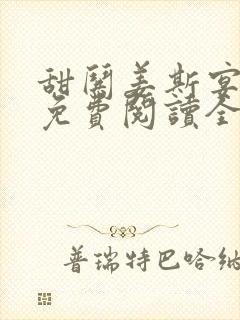 甜鬧姜斯宴
免費閱讀全
普瑞特巴哈納